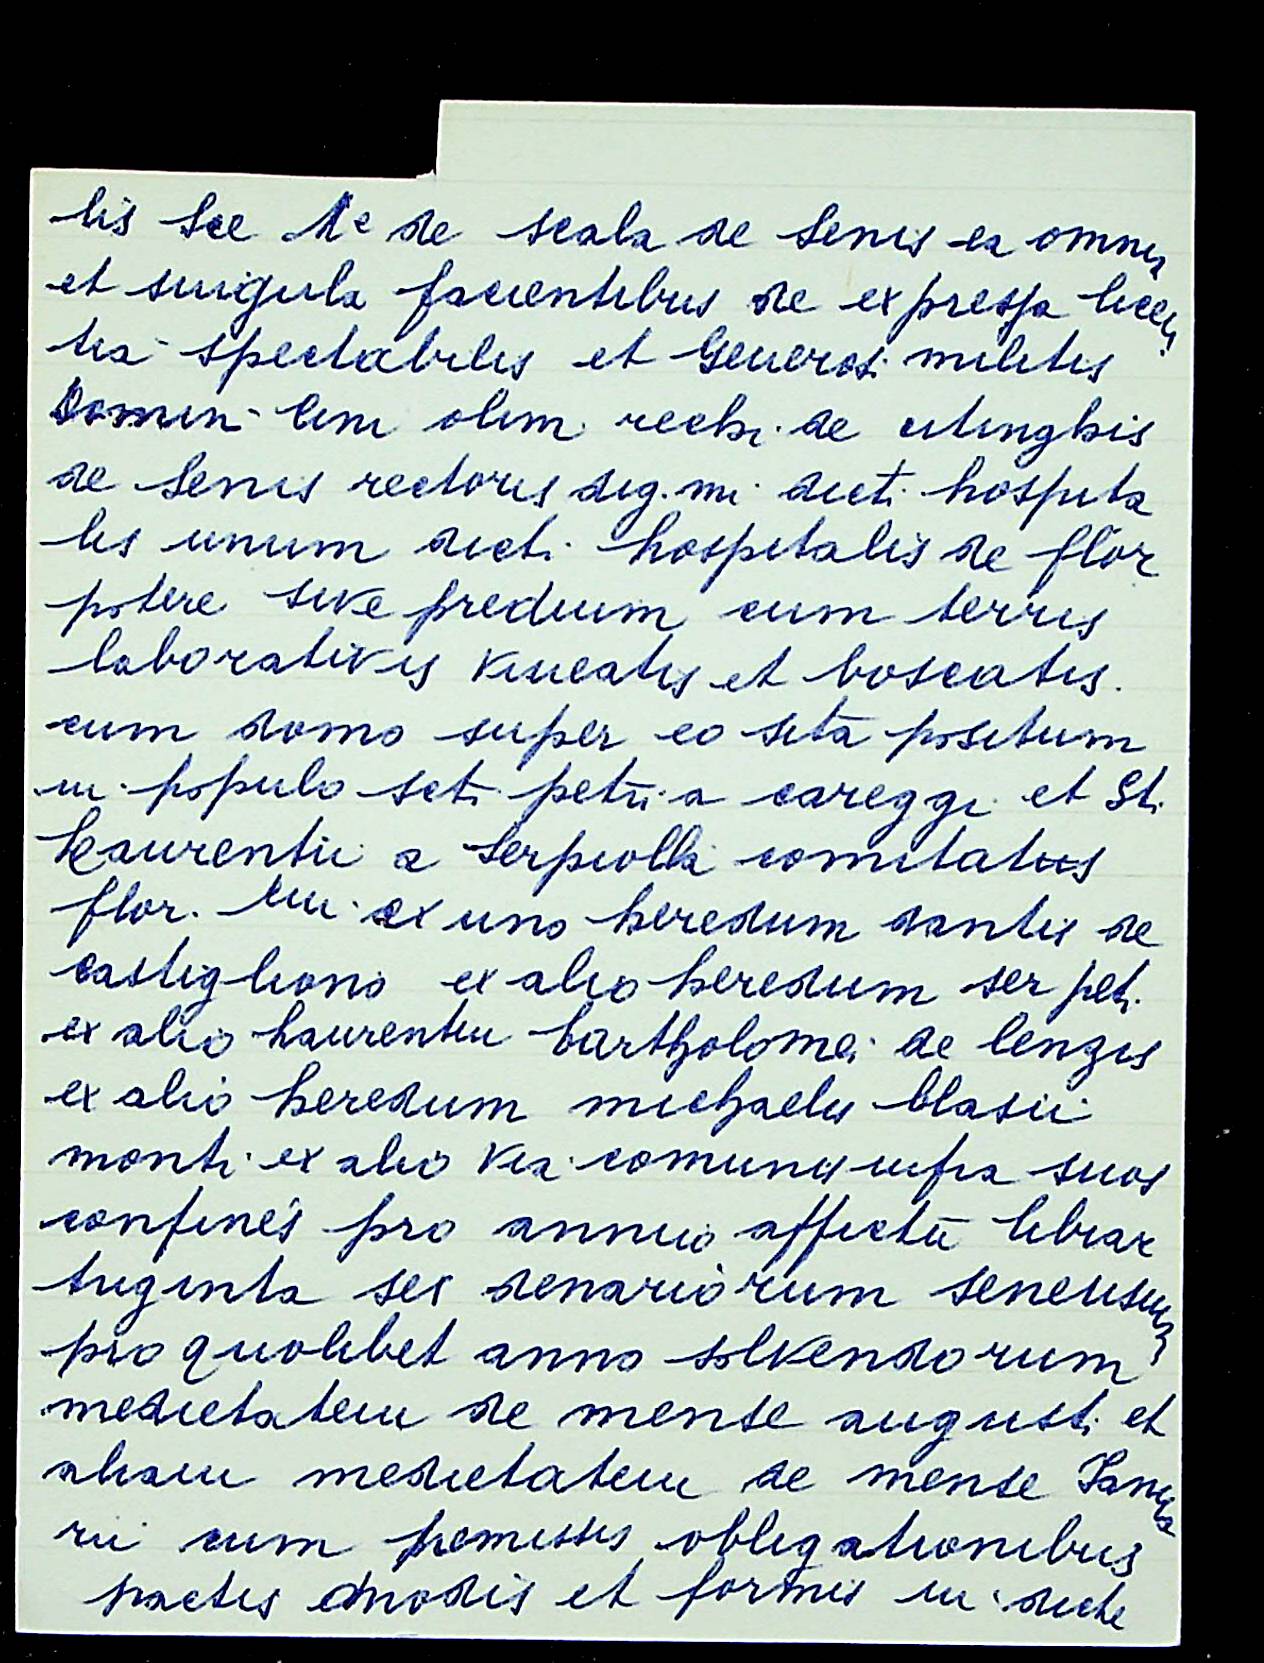 lis Sce Me de scala de Senis ea omnia
et singula facientibus de expressa licen
tia spectabilis et Generosi militis
Domin Cini olim recho de citinghis
de Senis rectoris dig.mi dicti hospita
lis unum dicti hospitalis de flor
potere sive predium cum terris
laborativis vineatis et boscatis.
cum domo super eo sita positum
in populo scti petri a careggi et St.
Laurentii a Serpiolla comitatus
flor. cui ex uno heredum dantis de
castigliono ex alio heredum ser petri
ex alio laurentii bartholomei de lenzis
ex alio heredum michaelis blasii
monti ex alio via comunis infra suos
confines pro annuo affictu librar
triginta sex denariorum senensium
pro quolibet anno solvendorum
medietatem de mense augusti et
aliam medietatem de mense Janua
rii cum premissis obligationibus
pactis modis et formis in dicte